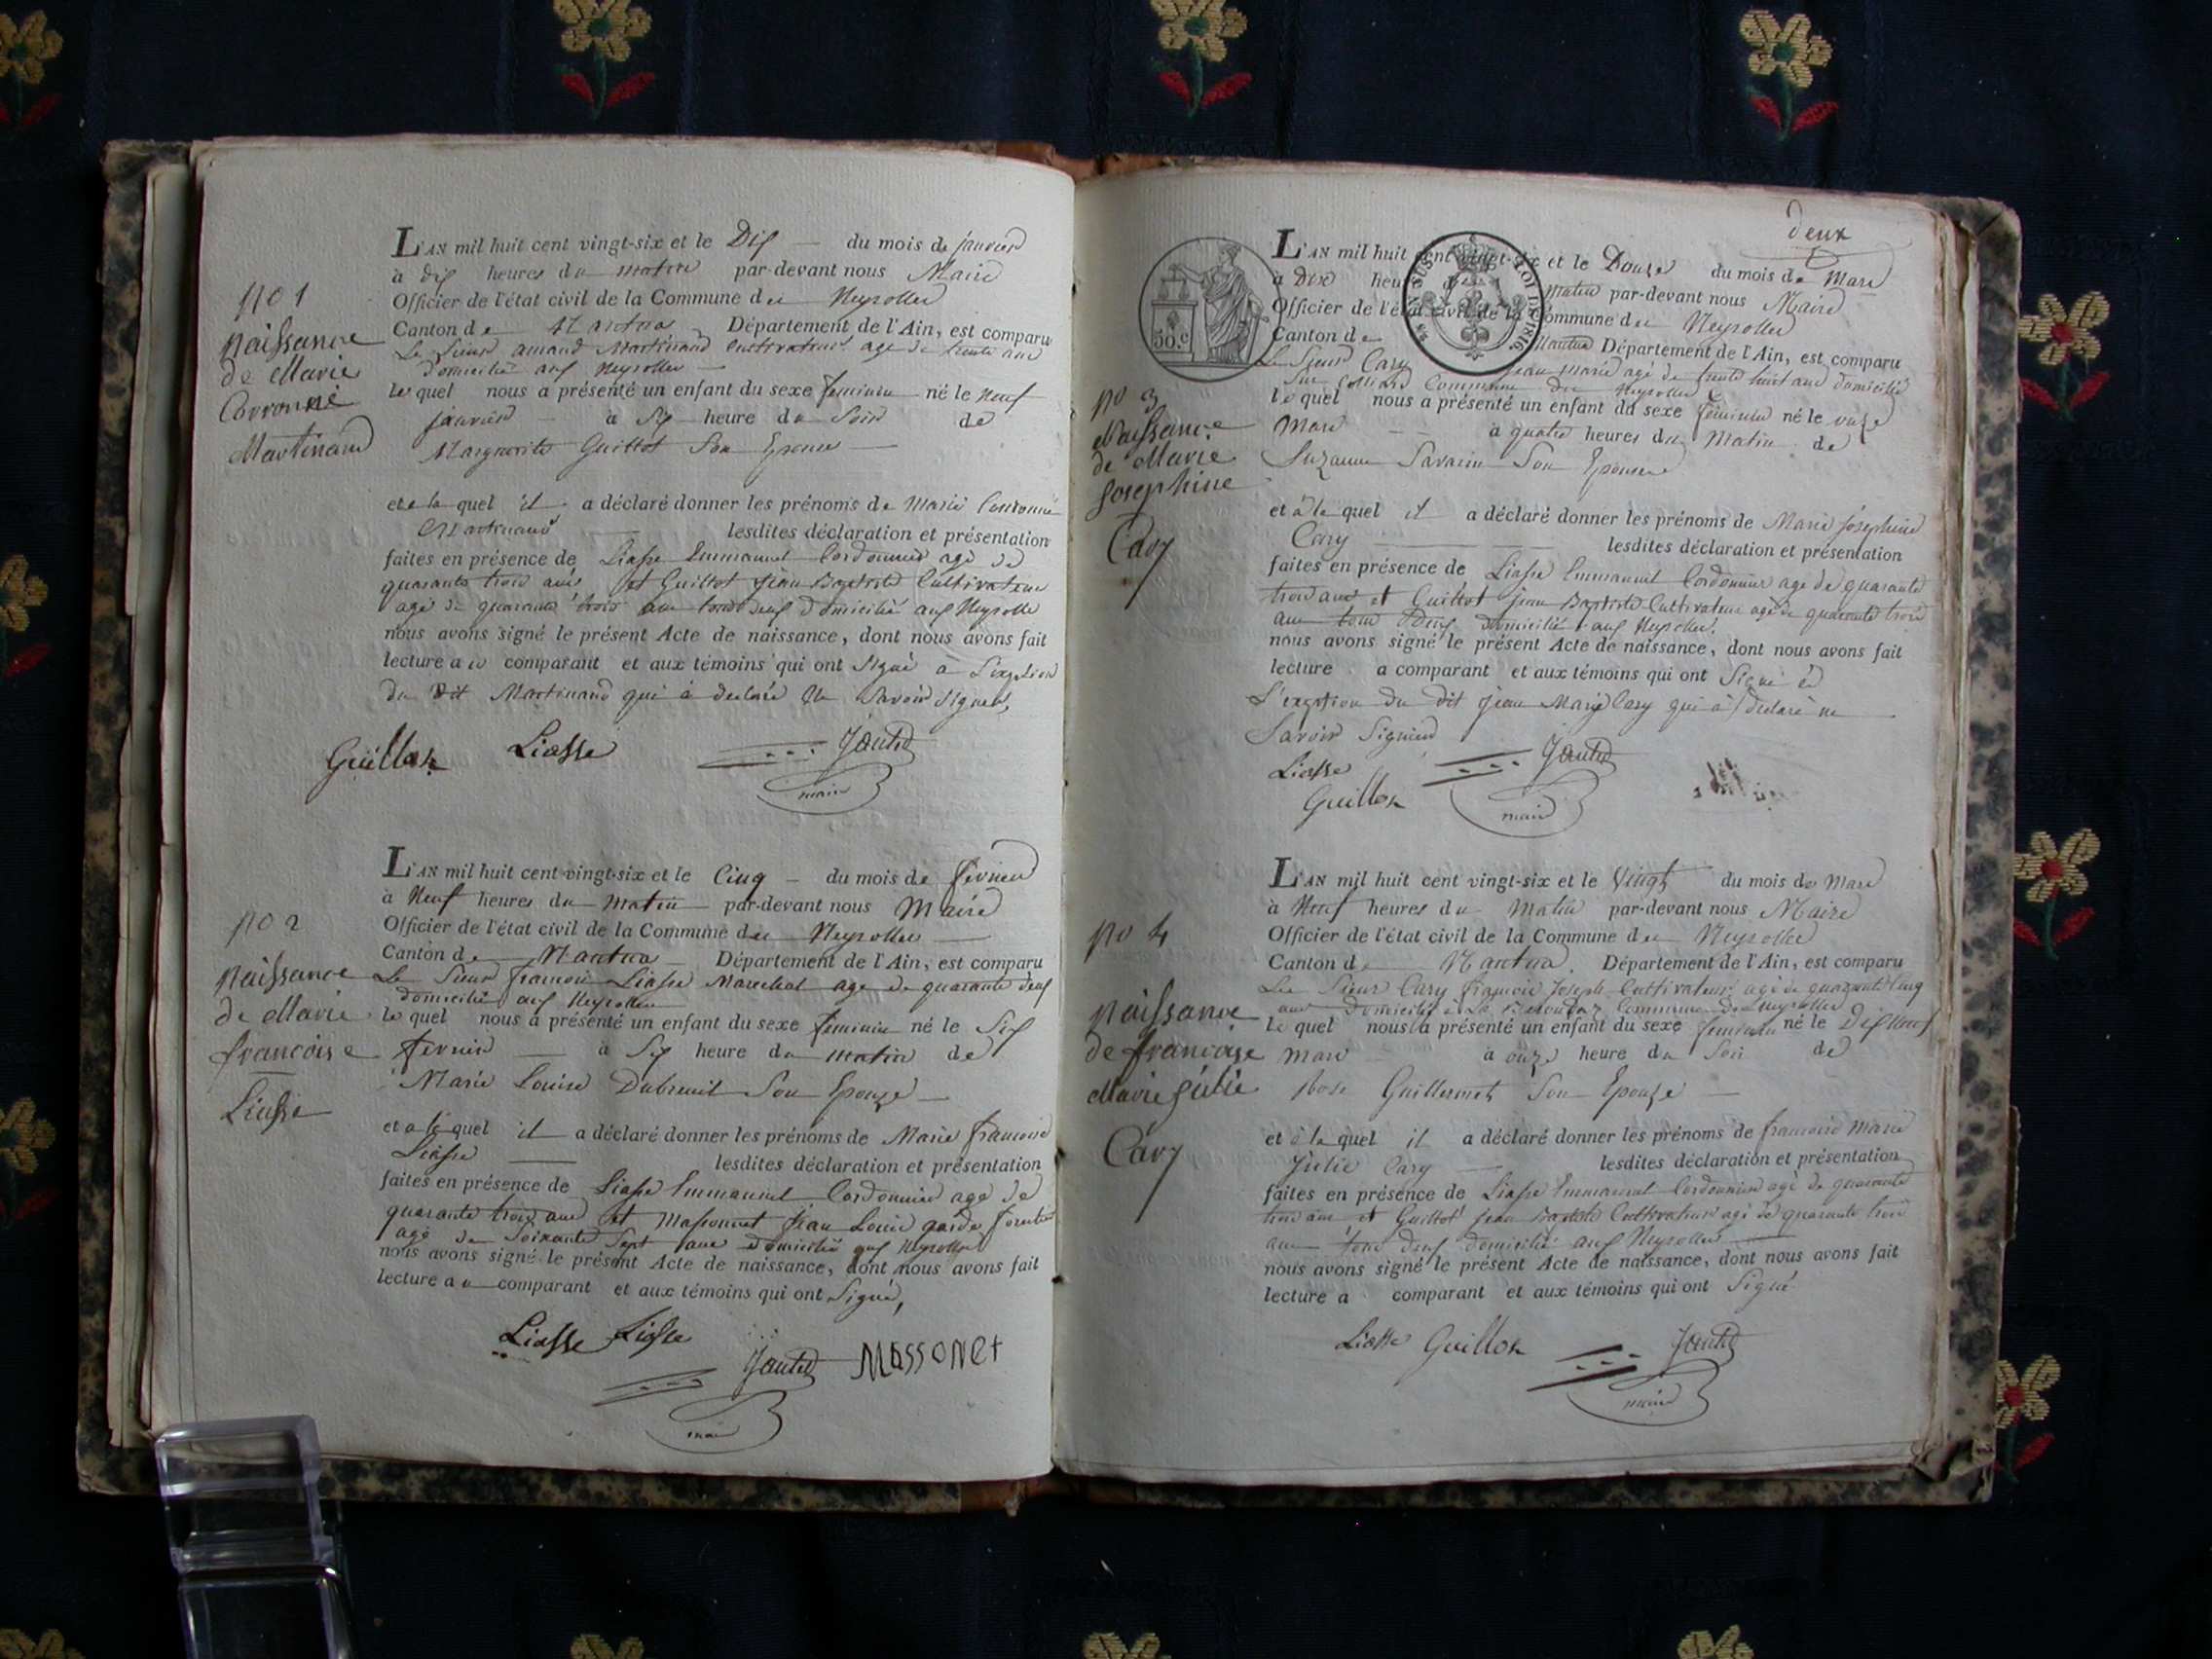 No 1
Naissance
de Marie
Corronné
Martinand
L'AN mil huit cent vingt-six et le Dix du mois de janvier
à dix heures du matin par-devant nous Maire
Officier de l'état civil de la Commune des Neyrolles
Canton de Nantua Département de l'Ain, est comparu
Le Sieur amand Martinand Cultivateur agé de trente ans
domicilié aux Neyrolles
lequel nous a présenté un enfant du sexe feminin né le neuf
janvier à Six heure du Soir de
Marguerite Guillot Son Epouse
et a la quel il a déclaré donner les prénoms de Marie Corronné
Martinand lesdites déclaration et présentation
faites en présence de Liasse Emmanuel Cordonnier agé de
quarante trois ans et Guillot Jean Baptiste Cultivateur
agé de quarante trois ans tous deux domicilié aux Neyrolles
nous avons signé le présent Acte de naissance, dont nous avons fait
lecture au comparant et aux témoins qui ont Signé à L'exeption
du dit Martinand qui à declaré ne Savoir Signer,
Guillot Liasse
maire
No 2
Naissance
de Marie
francoise
Liasse
L'AN mil huit cent vingt-six et le Cinq du mois de fevrier
à Neuf heures du matin par-devant nous Maire
Officier de l'état civil de la Commune des Neyrolles
Canton de Nantua Département de l'Ain, est comparu
Le Sieur francois Liasse Marechal agé de quarante deux
domicilié aux Neyrolles
lequel nous a présenté un enfant du sexe feminin né le Six
fevrier à Six heure du matin de
Marie Louise Dubreuil Son Epouze
et a la quel il a déclaré donner les prénoms de Marie francoise
Liasse lesdites déclaration et présentation
faites en présence de Liasse Emmanuel Cordonnier agé de
quarante trois ans et Massonnet Jean Louis garde forestier
agé de Soixante Sept ans domicilié aux Neyrolles
nous avons signé le présent Acte de naissance, dont nous avons fait
lecture au comparant et aux témoins qui ont Signé,
Liasse Liasse
Massonet
maire
deux
50.c
EN SUS LOI DE 1816.
No 3
Naissance
de Marie
Josephine
Cary
L'AN mil huit cent vingt-six et le Douze du mois de Mars
à Dix heures du matin par-devant nous Maire
Officier de l'état civil de la Commune des Neyrolles
Canton de Nantua Département de l'Ain, est comparu
Le Sieur Cary jean Marie agé de trente huit ans domicilié
Sur Commune des Neyrolles
lequel nous a présenté un enfant du sexe feminin né le onze
Mars à quatre heures du Matin de
Suzanne Savarin Son Epouse
et à la quel il a déclaré donner les prénoms de Marie Josephine
Cary lesdites déclaration et présentation
faites en présence de Liasse Emmanuel Cordonnier agé de quarante
trois ans et Guillot jean Baptiste Cultivateur agé de quarante trois
ans tous deux domicilié aux Neyrolles.
nous avons signé le présent Acte de naissance, dont nous avons fait
lecture a comparant et aux témoins qui ont Signé à
L'exeption du dit jean Marie Cary qui à declaré ne
Savoir Signer
Liasse
Guillot
maire
No 4
Naissance
de francoise
Marie Julie
Cary
L'AN mil huit cent vingt-six et le Vingt du mois de Mars
à Neuf heures du Matin par-devant nous Maire
Officier de l'état civil de la Commune des Neyrolles
Canton de Nantua. Département de l'Ain, est comparu
Le Sieur Cary francois Joseph Cultivateur agé de quarante Cinq
ans domicilié à la Commune des Neyrolles
lequel nous a présenté un enfant du sexe feminin né le Dix neuf
mars à onze heure du Soir de
Rose Guillermet Son Epouze
et à la quel il a déclaré donner les prénoms de francoise Marie
Julie Cary lesdites déclaration et présentation
faites en présence de Liasse Emmanuel Cordonnier agé de quarante
trois ans et Guillot jean Baptiste Cultivateur agé de quarante trois
ans tous deux domicilié aux Neyrolles
nous avons signé le présent Acte de naissance, dont nous avons fait
lecture a comparant et aux témoins qui ont Signé
Liasse Guillot
maire